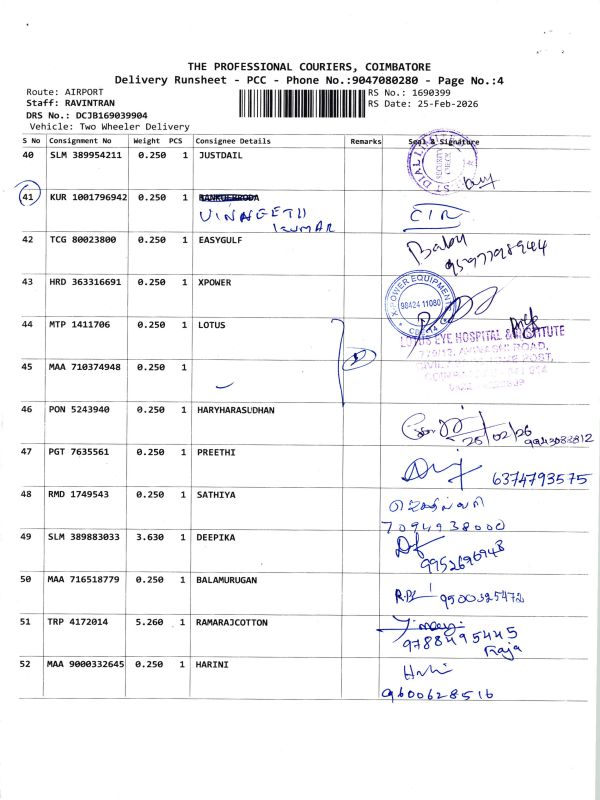 THE PROFESSIONAL COURIERS, COIMBATORE
Delivery Runsheet - PCC - Phone No.:9047080280 - Page No.:4
Route: AIRPORT
RS No.: 1690399
Staff: RAVINTRAN
RS Date: 25-Feb-2026
DRS No.: DCJB169039904
Vehicle: Two Wheeler Delivery
S No Consignment No Weight PCS Consignee Details Remarks Seal & Signature
40 SLM 389954211 0.250 1 JUSTDAIL
SECURITY CHECK
41 KUR 1001796942 0.250 1
VINAGETH KUMAR
42 TCG 80023800 0.250 1 EASYGULF Baby
9597798944
43 HRD 363316691 0.250 1 XPOWER
X-POWER EQUIPMENT
98424 11080
44 MTP 1411706 0.250 1 LOTUS
LOTUS EYE HOSPITAL & INSTITUTE
770/12, AVINASHI ROAD,
45 MAA 710374948 0.250 1
46 PON 5243940 0.250 1 HARYHARASUDHAN
25/02/26
47 PGT 7635561 0.250 1 PREETHI
6374793575
48 RMD 1749543 0.250 1 SATHIYA
7094938000
49 SLM 389883033 3.630 1 DEEPIKA
9952696948
50 MAA 716518779 0.250 1 BALAMURUGAN
9500325472
51 TRP 4172014 5.260 1 RAMARAJCOTTON
9788495445
Raja
52 MAA 9000332645 0.250 1 HARINI
9600628516